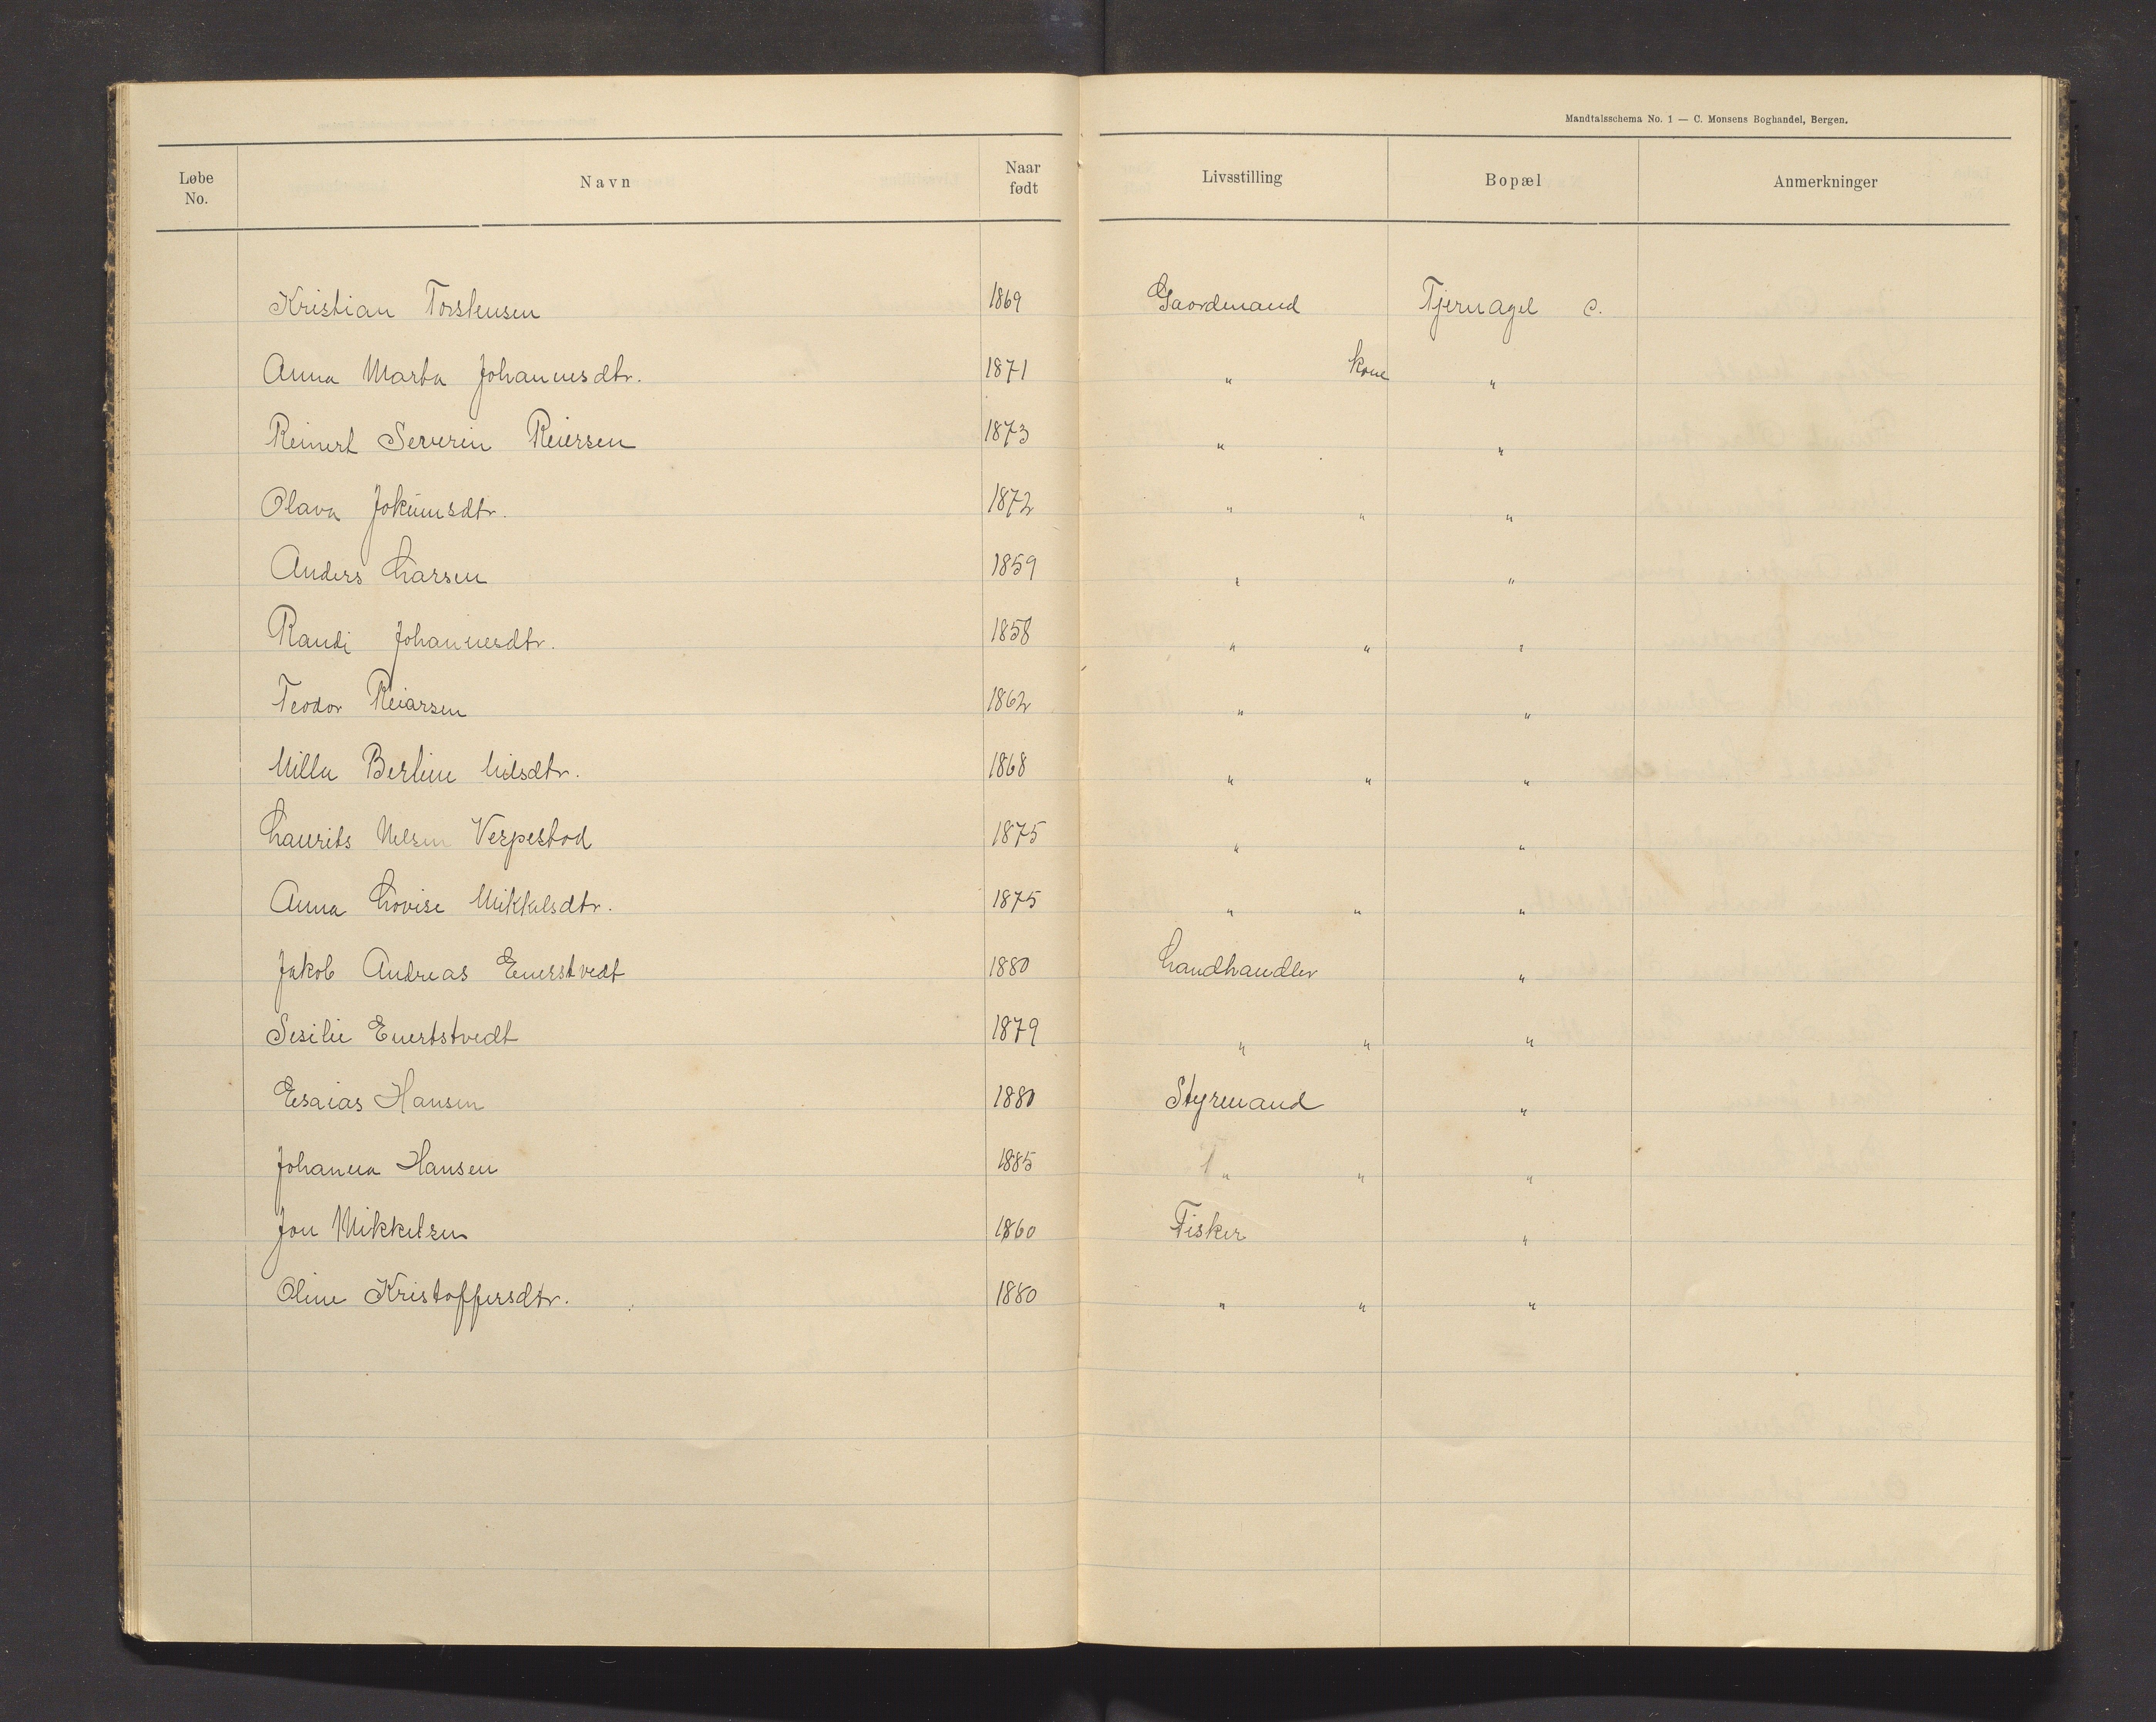 Mandtalsschema No. 1 — C. Monsens Boghandel, Bergen.
Løbe No. Navn Naar født Livsstilling Bopæl Anmerkninger
Kristian Torstensen 1869 Gaordmand Tjernagel C.
Anna Marta Johannesdtr. 1871 " kone "
Reinert Severin Reiersen 1873 " "
Olava Jokumsdtr. 1872 " " "
Anders Larsen 1859 " "
Randi Johannesdtr. 1858 " " "
Teodor Reiarsen 1862 " "
Milla Bertine Nilsdtr. 1868 " " "
Laurits Nelsen Vespestad 1875 " "
Anna Lovise Mikkelsdtr. 1875 " " "
Jakob Andreas Enerstvedt 1880 Landhandler "
Sesilie Enertstvedt 1879 " " "
Esaias Hansen 1880 Styrmand "
Johanna Hansen 1885 " " "
Jon Mikkelsen 1860 Fisker "
Oline Kristoffersdtr. 1880 " " "